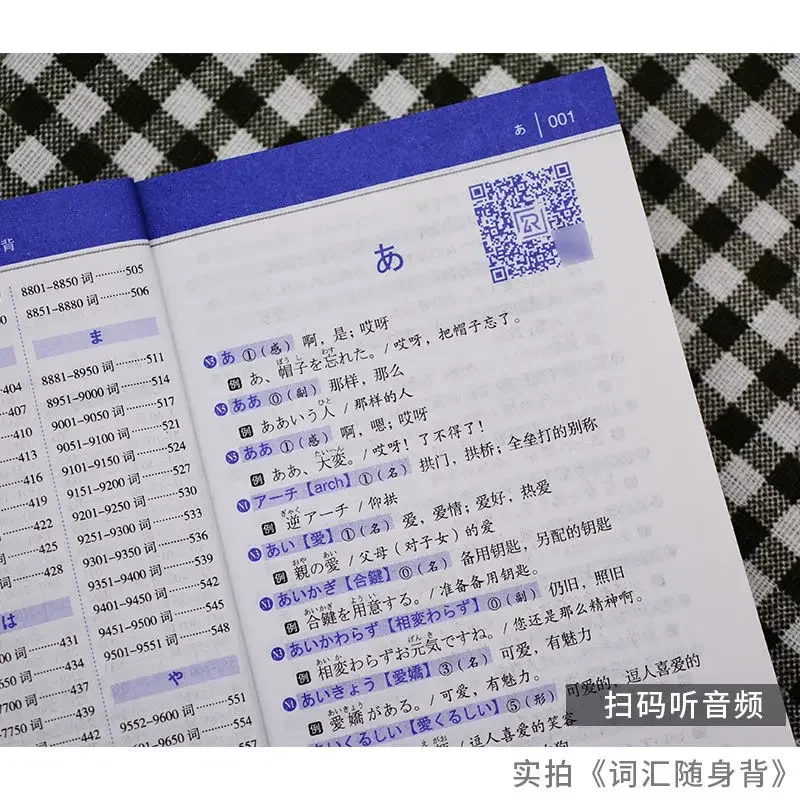 背
8801-8850 词………505
8851-8880 词………506
ま
8881-8950 词………511
8951-9000 词………514
9001-9050 词………517
9051-9100 词………521
9101-9150 词………524
9151-9200 词………527
9201-9250 词………530
9251-9300 词………533
9301-9350 词………536
9351-9400 词………539
9401-9450 词………542
9451-9500 词………545
9501-9551 词………548
や
9552-9600 词………551
9601-9650 词………554
557
404
407
410
413
416
419
422
425
428
は
431
434
437
439
442
あ | 001
あ
N5 あ ①(感) 啊，是；哎呀
例 あ、帽子を忘れた。/ 哎呀，把帽子忘了。
N5 ああ ⓪(副) 那样，那么
例 ああいう人 / 那样的人
N5 ああ ①(感) 啊，嗯；哎呀
例 ああ、大変。/ 哎呀！了不得了！
N1 アーチ【arch】①(名) 拱门，拱桥；全垒打的别称
例 逆アーチ / 仰拱
N3 あい【愛】①(名) 爱，爱情；爱好，热爱
例 親の愛 / 父母（对子女）的爱
N1 あいかぎ【合鍵】⓪(名) 备用钥匙，另配的钥匙
例 合鍵を用意する。/ 准备备用钥匙。
あいかわらず【相変わらず】⓪(副) 仍旧，照旧
例 相変わらずお元気ですね。/ 您还是那么精神啊。
N1 あいきょう【愛嬌】③(名) 可爱，有魅力
例 愛嬌がある。/ 可爱，有魅力。
あいくるしい【愛くるしい】⑤(形) 可爱的，逗人喜爱的
/ 逗人喜爱的笑容
扫码听音频
实拍《词汇随身背》